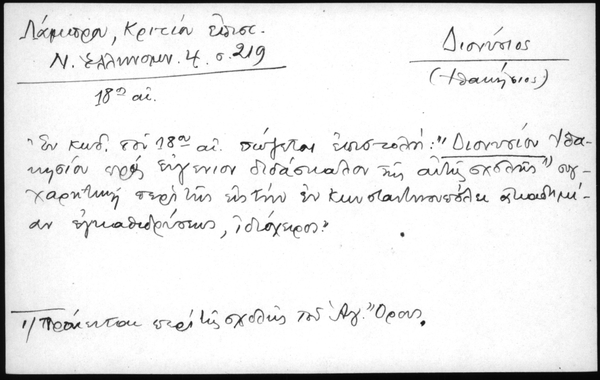 Λάμπρου, Κριτίου επισ.
Ν. Ελληνομν. 4. σ. 219
18ου αἰ.
Διονύσιος
(Ἰθακήσιος)
"Ἐν κωδ. τοῦ 18ου αἰ. σώζεται ἐπιστολή: "Διονυσίου Ἰθα-
κησίου πρὸς Εὐγένιον διδάσκαλον τῆς αὐτῆς σχολῆς¹⁾ συγ-
χαρητικὴ περὶ τῆς εἰς τὴν ἐν Κωνσταντινουπόλει ἀκαδημί-
αν ἐγκαθιδρύσεως, ἰδιόχειρος".
1/ Πρόκειται περὶ τῆς σχολῆς τοῦ Ἁγ. Ὄρους.